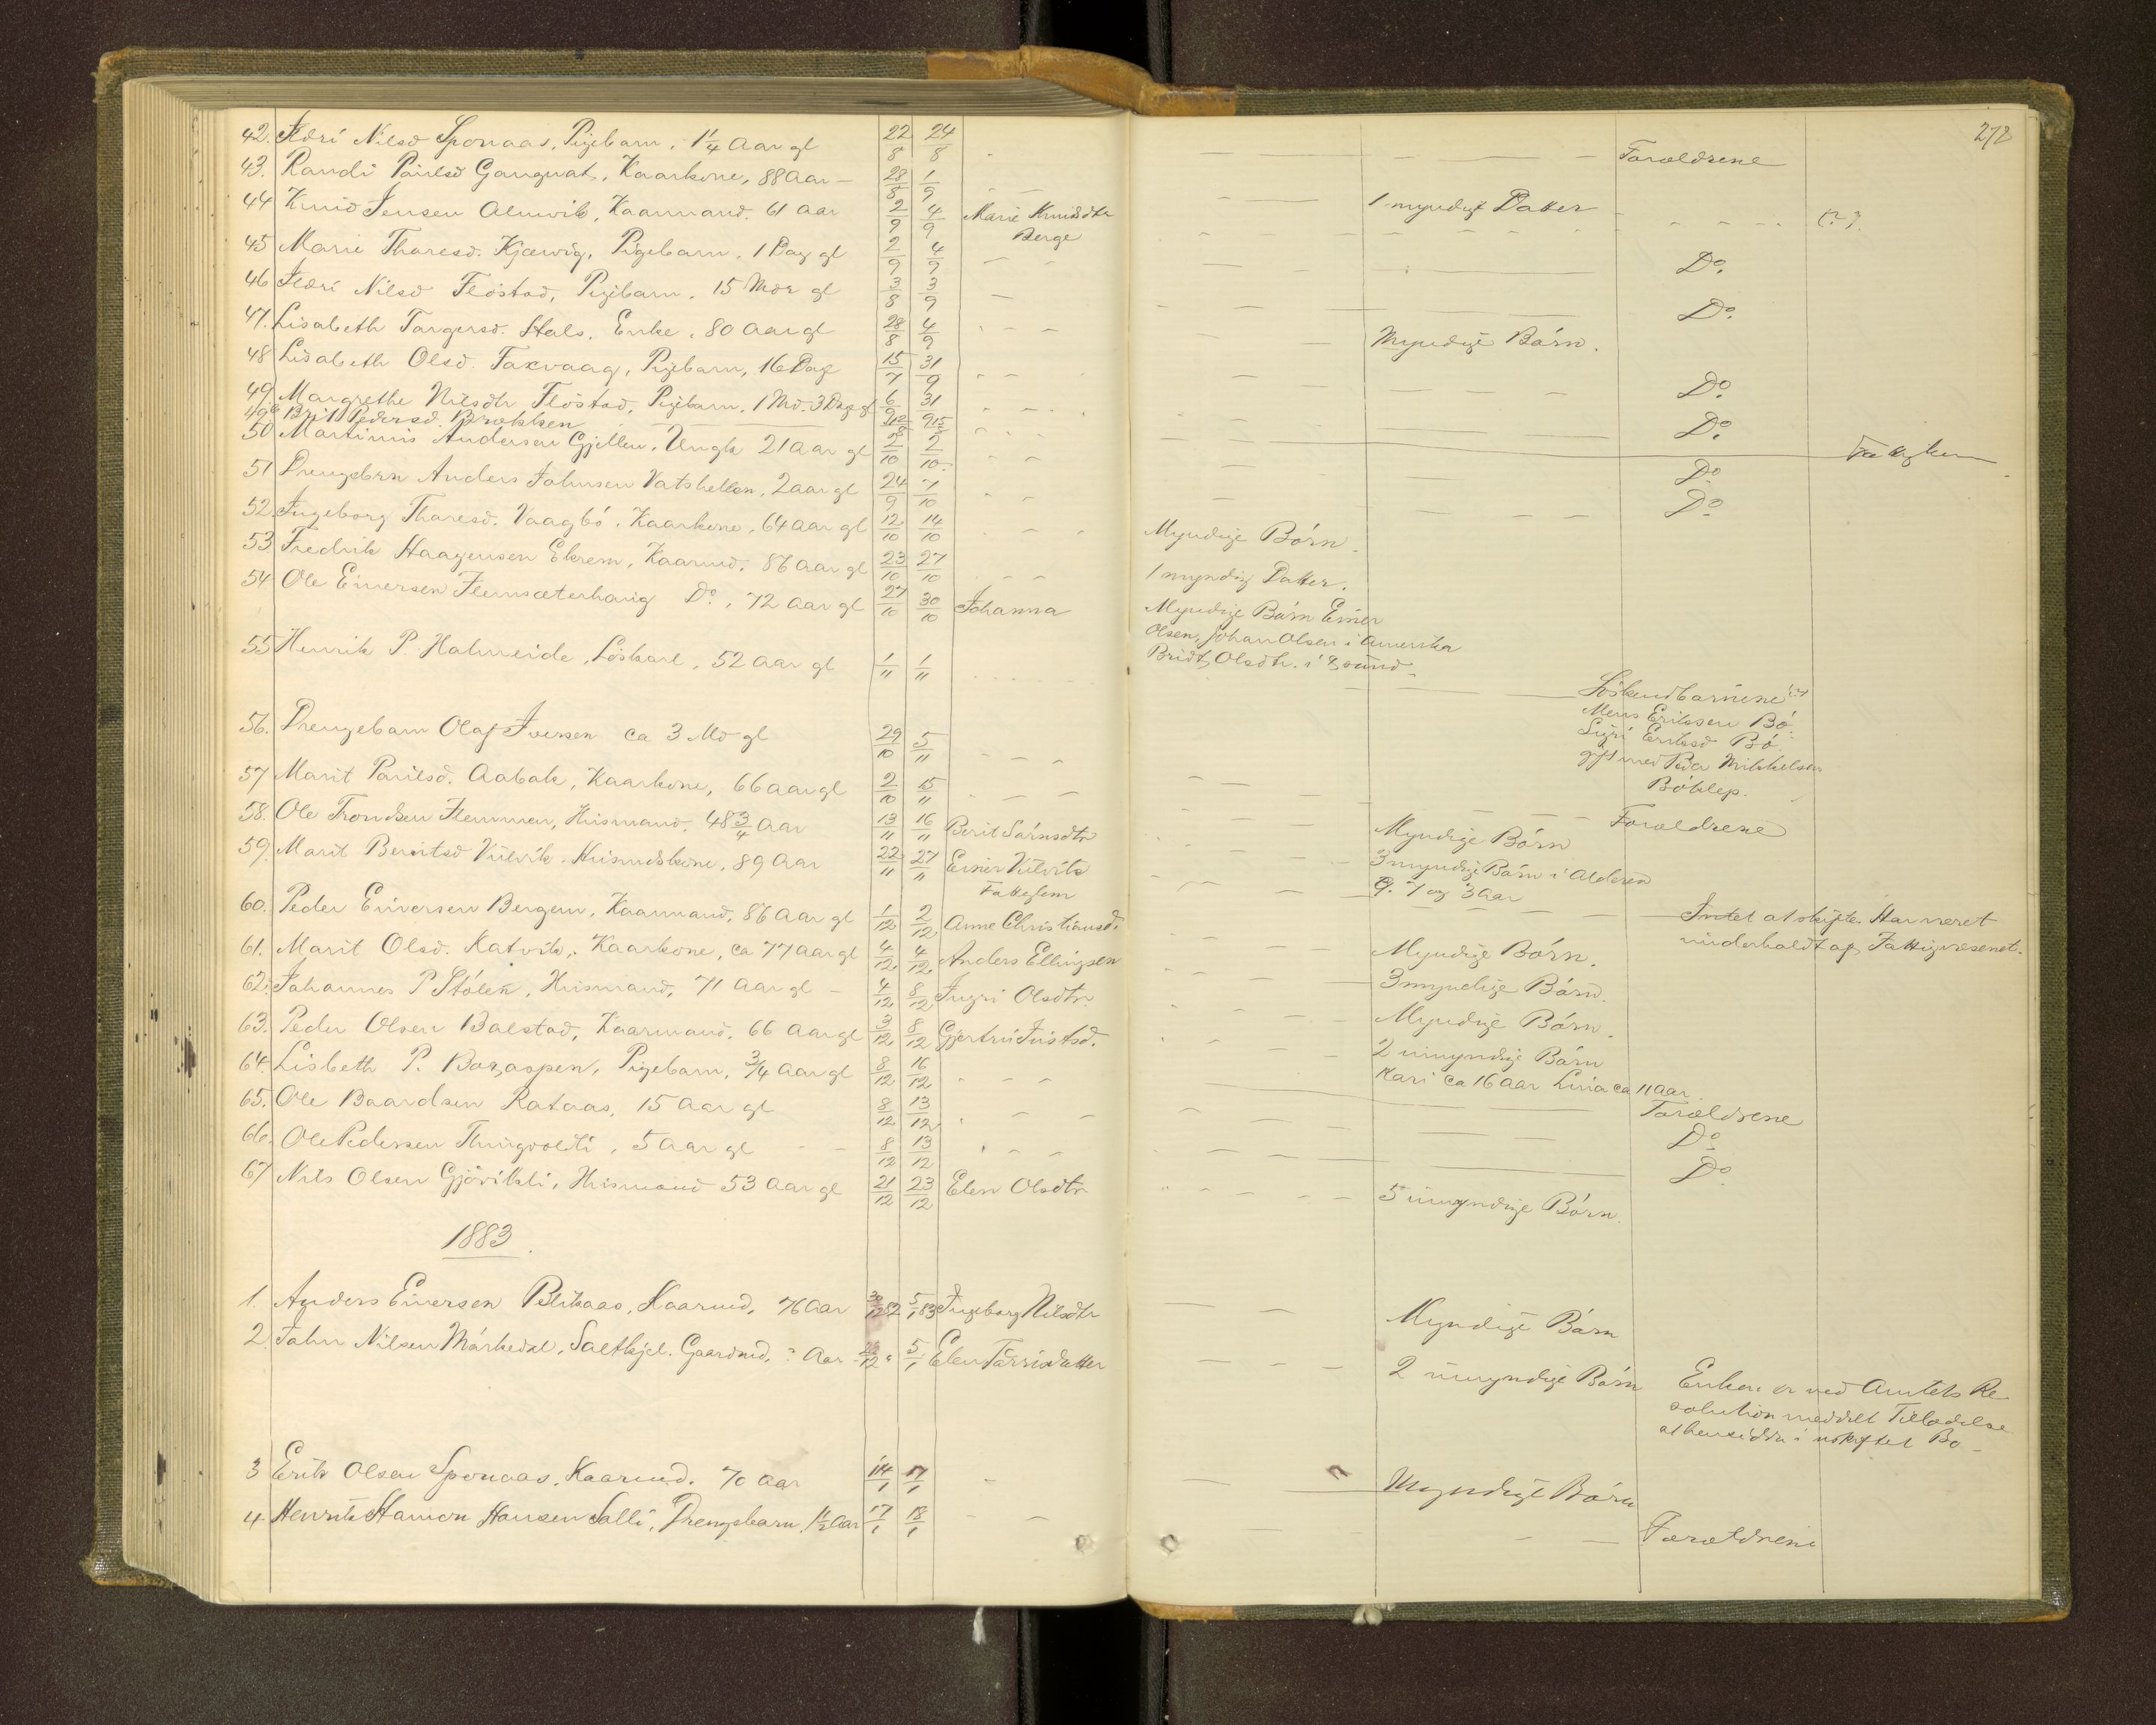 272
42. Sønd Nilsd Sponaas, Pigebarn, 1 1/4 Aar gl 22/8 24/8 Forældrene
43. Randi Paulsd Gangnat, Kaarkone, 88 Aar 28/8 1/9 1 myndig Datter
44 Knud Jensen Almvik, Kaarmand. 61 Aar 2/9 4/9 Marie Knudsdtr
Berge
45 Marie Thoresd. Kjørvig, Pigebarn. 1 Dag gl 2/9 4/9 Do.
46 Nilsd Flöstad, Pigebarn. 15 Mdr gl 3/8 3/9 Do.
47. Lisabeth Torgersd. Hals. Enke. 80 Aar gl 28/8 4/9 Myndige Börn.
48 Lisabeth Olsd. Taxvaag, Pigebarn, 16 Dag 15/7 31/9 Do
49 Margrethe Nilsdtr Flöstad, Pigebarn. 1 Md. 3 Dag gl 6/9 31/9 Do.
49b Brit Pedersd. Brækken 12/8 15/8
50 Martinus Andersen Gjellen, Ungk 21 Aar gl 2/10 2/10 Do
51 Drengebrn Anders Johnsen Vatshellen, 2 Aar gl 24/9 7/10 Do
52. Ingeborg Thoresd. Vaagbö. Kaarkone. 64 Aar gl 12/10 14/10 Myndige Börn.
53 Fredrik Haagensen Ekrem, Kaarmd. 86 Aar gl 23/10 27/10 1 myndig Datter.
54. Ole Einersen Flemsæterhaug Do., 72 Aar gl 27/10 30/10 Johanna Myndige Börn Einer
Olsen, Johan Olsen i Amerika
Bridt Olsdtr. i
55 Henrik P. Halmeide, Löskarl, 52 Aar gl 1/11 1/11 Söskendbarnene
Mons Eriksen Bö.
Sigri Eriksd Bö.
gift med Peder Mikkelsen
Böklep.
56. Drengebarn Olaf Iversen ca 3 Md gl 29/10 5/11 Forældrene
57 Marit Paulsd. Aabak, Kaarkone, 66 Aar gl 2/10 15/11 Myndige Börn
58. Ole Trondsen Flemmen, Husmand, 48 3/4 Aar 13/11 16/11 Berit Sörnsdtr 3 myndige Börn i Alderen
9. 7 og 3 Aar
59. Marit Berntsd Vulvik. Husmdskone, 89 Aar 22/11 27/11 Einer Vulvik
Fattiglem
Intet at skifte. Har været
underholdt af Fattigvæsenet.
60. Peder Einersen Bergem. Kaarmand, 86 Aar gl 1/12 2/12 Anne Christiansd. Myndige Börn.
61. Marit Olsd. Katvik. Kaarkone, ca 77 Aar gl 4/12 4/12 Anders Ellingsen 3 myndige Börn.
62. Johannes P Stölen, Husmand, 71 Aar gl 4/12 8/12 Ingri Olsdtr. Myndige Börn.
63. Peder Olsen Balstad, Kaarmand. 66 Aar gl 3/12 8/12 Gjertru Justsd. 2 umyndige Börn
Kari ca 16 Aar Lina ca 11 Aar.
64. Lisbeth P. Boraspen, Pigebarn, 3/4 Aar gl 8/12 16/12 Forældrene
65. Ole Baardsen Rataas, 15 Aar gl 8/12 13/12 Do
66. Ole Pedersen Thingvoldli, 5 Aar gl 8/12 13/12 Do
67 Nils Olsen Gjövikli, Husmand 53 Aar gl 21/12 23/12 Elen Olsdtr. 5 umyndige Börn.
1883
1. Anders Einersen Blikaas, Kaarmd, 76 Aar 30/12 82 5/1 83 Ingeborg Nilsdtr Myndige Börn
2. John Nilsen Mörkedal, Saltkjel. Gaardmd, ? Aar 5/1 Elen Torrisdatter 2 umyndige Börn Enken er ved Amtets Re-
solution meddelt Tilladelse
at hensidde i uskiftet Bo
3 Erik Olsen Sponaas, Kaarmd. 70 Aar 14/1 17/1 Myndige Börn
4 Henrik Hamon Hansen Solli, Drengebarn, 1 1/2 Aar 17/1 18/1 Forældrene